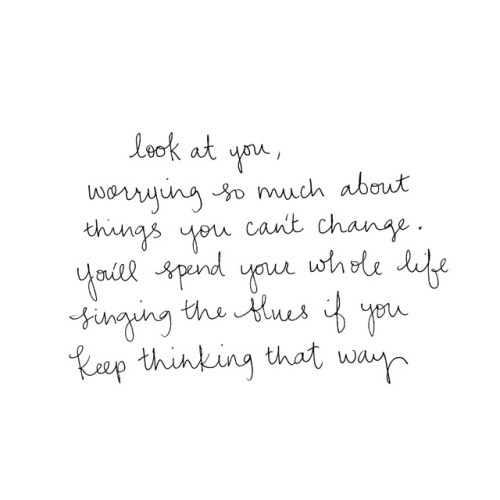 look at you,
worrying so much about
things you can't change.
you'll spend your whole life
singing the blues if you
keep thinking that way